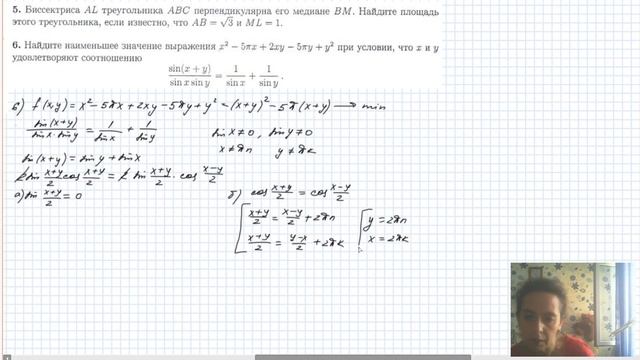 5. Биссектриса AL треугольника ABC перпендикулярна его медиане BM. Найдите площадь
этого треугольника, если известно, что AB = √3 и ML = 1.
6. Найдите наименьшее значение выражения x² − 5πx + 2xy − 5πy + y² при условии, что x и y
удовлетворяют соотношению
sin(x + y) / (sin x sin y) = 1 / sin x + 1 / sin y .
6) f(x,y) = x² − 5πx + 2xy − 5πy + y² = (x+y)² − 5π(x+y) → min
sin(x+y) / (sin x · sin y) = 1 / sin x + 1 / sin y    sin x ≠ 0, sin y ≠ 0
x ≠ πn    y ≠ πk
sin(x+y) = sin y + sin x
2 sin (x+y)/2 cos (x+y)/2 = 2 sin (x+y)/2 · cos (x−y)/2
а) sin (x+y)/2 = 0    б) cos (x+y)/2 = cos (x−y)/2
[ (x+y)/2 = (x−y)/2 + 2πn    [ y = 2πn
(x+y)/2 = (y−x)/2 + 2πk    x = 2πk